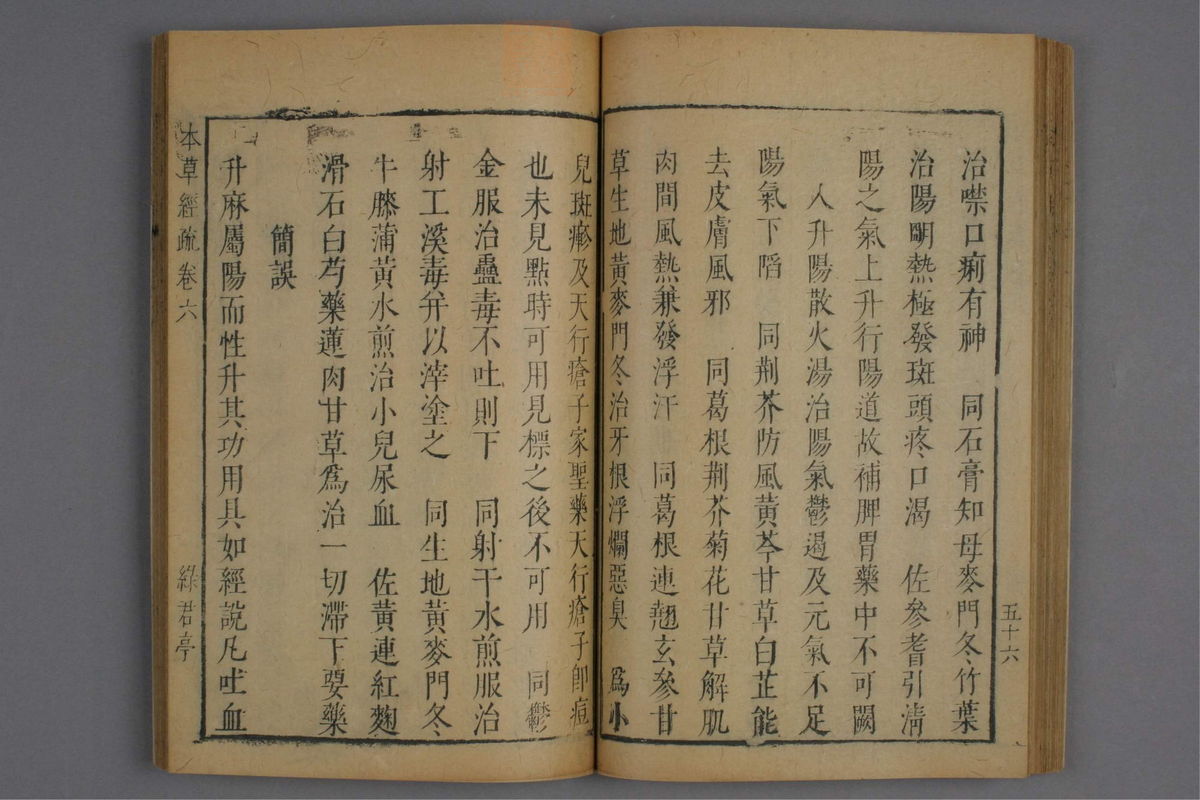 治噤口痢有神　同石膏知母麥門冬竹葉
治陽明熱極發斑頭疼口渴　佐參耆引清
陽之氣上升行陽道故補脾胃藥中不可闕
人升陽散火湯治陽氣鬱遏及元氣不足
陽氣下陷　同荆芥防風黃芩甘草白芷能
去皮膚風邪　同葛根荆芥菊花甘草解肌
肉間風熱兼發浮汗　同葛根連翹玄參甘
草生地黃麥門冬治牙根浮爛惡臭　爲小
五十六
兒斑疹及天行瘡子家聖藥天行瘡子卽痘
也未見點時可用見標之後不可用　同鬱
金服治蠱毒不吐則下　同射干水煎服治
射工溪毒幷以滓塗之　同生地黃麥門冬
牛膝蒲黃水煎治小兒尿血　佐黃連紅麴
滑石白芍藥蓮肉甘草爲治一切滯下要藥
簡誤
升麻屬陽而性升其功用具如經說凡吐血
本草經疏卷六
綠君亭